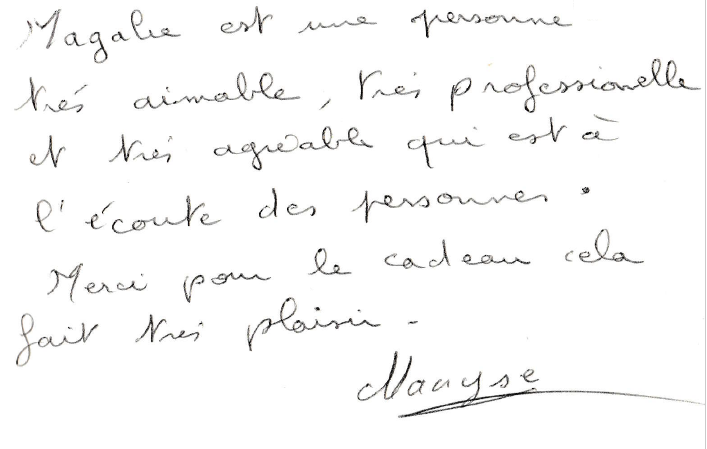 Magalie est une personne
très aimable, très professionelle
et très agréable qui est à
l'écoute des personnes.
Merci pour le cadeau cela
fait très plaisir.
Maryse